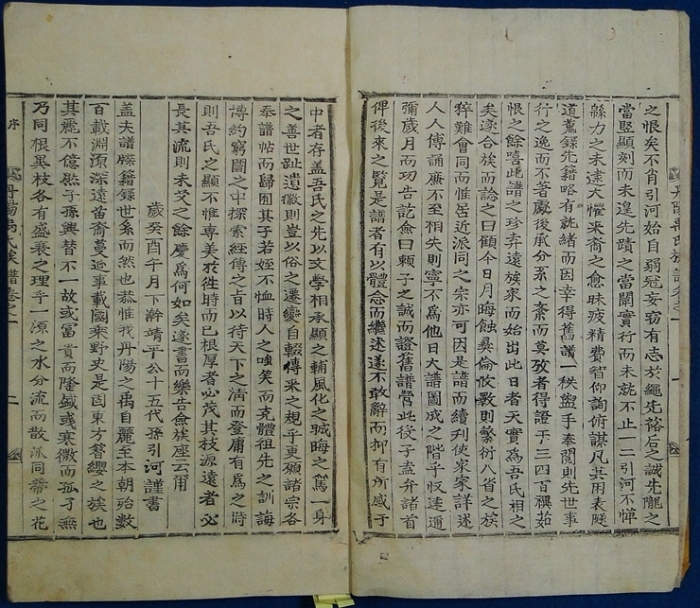 之恨矣不肖引河始自弱冠妄窃有志於繩先裕后之誠先隴之
當竪顯刻而未遑先蹟之當闡實行而未就不止一二引河不憚
緜力之未逮大懼来裔之愈昧疲精費智仰詢俯謀凡其困表隧
道蒐錄先籍略有就緒而因幸得舊譜一秩盥手奉閱則先世事
行之逸而不著處後承分系之紊而莫攷者得證于三四百禩茹
恨之餘嘻此譜之珍弆遠族家而始出此日者天實爲吾氏相之
矣遂合族而論之曰顧今日月晦蝕彛倫攸斁則繁衍八省之族
猝難會同而惟居近派同之宗亦可因是譜而續刊使家家詳述
人人傳誦庶不至相失則寧不爲他日大譜圖成之階乎恔逡遁
彌歲月而功告訖僉曰賴子之誠而證舊譜营此役子盍弁諸首
俾後來之覽是譜者有以體念而繼述遂不敢辭而抑有所感于
丹陽禹氏族譜卷之一
一
中者存盖吾氏之先以文學相承顯之輔風化之誠晦之篤一身
之善世趾遺徽則豈以俗之遷變自輟傳来之規乎更願諸宗各
奉譜帖而歸囿其子若姪不恤時人之嗤笑而克體祖先之訓誨
博約窮圖之中探索經傳之旨以待天下之淸而登庸有爲之時
則吾氏之顯不惟專美於徃時而已根厚者必茂其枝源遠者必
長其流則未艾之餘慶爲何如矣遂書而樂告僉族座云甭
歲癸酉午月下澣靖平公十五代孫引河謹書
盖夫譜牒籍錄世系而然也恭惟我丹陽之禹自麗至本朝殆數
百載淵源深遠苗裔蔓延事載國乘野史是因東方簪纓之族也
其麗不億然子孫興替不一故或富貴而隆鹹或寒微而孤孑無
乃同根異枝各有盛衰之理乎一源之水分流而散派同蔕之花
序
丹陽禹氏族譜卷之一
二